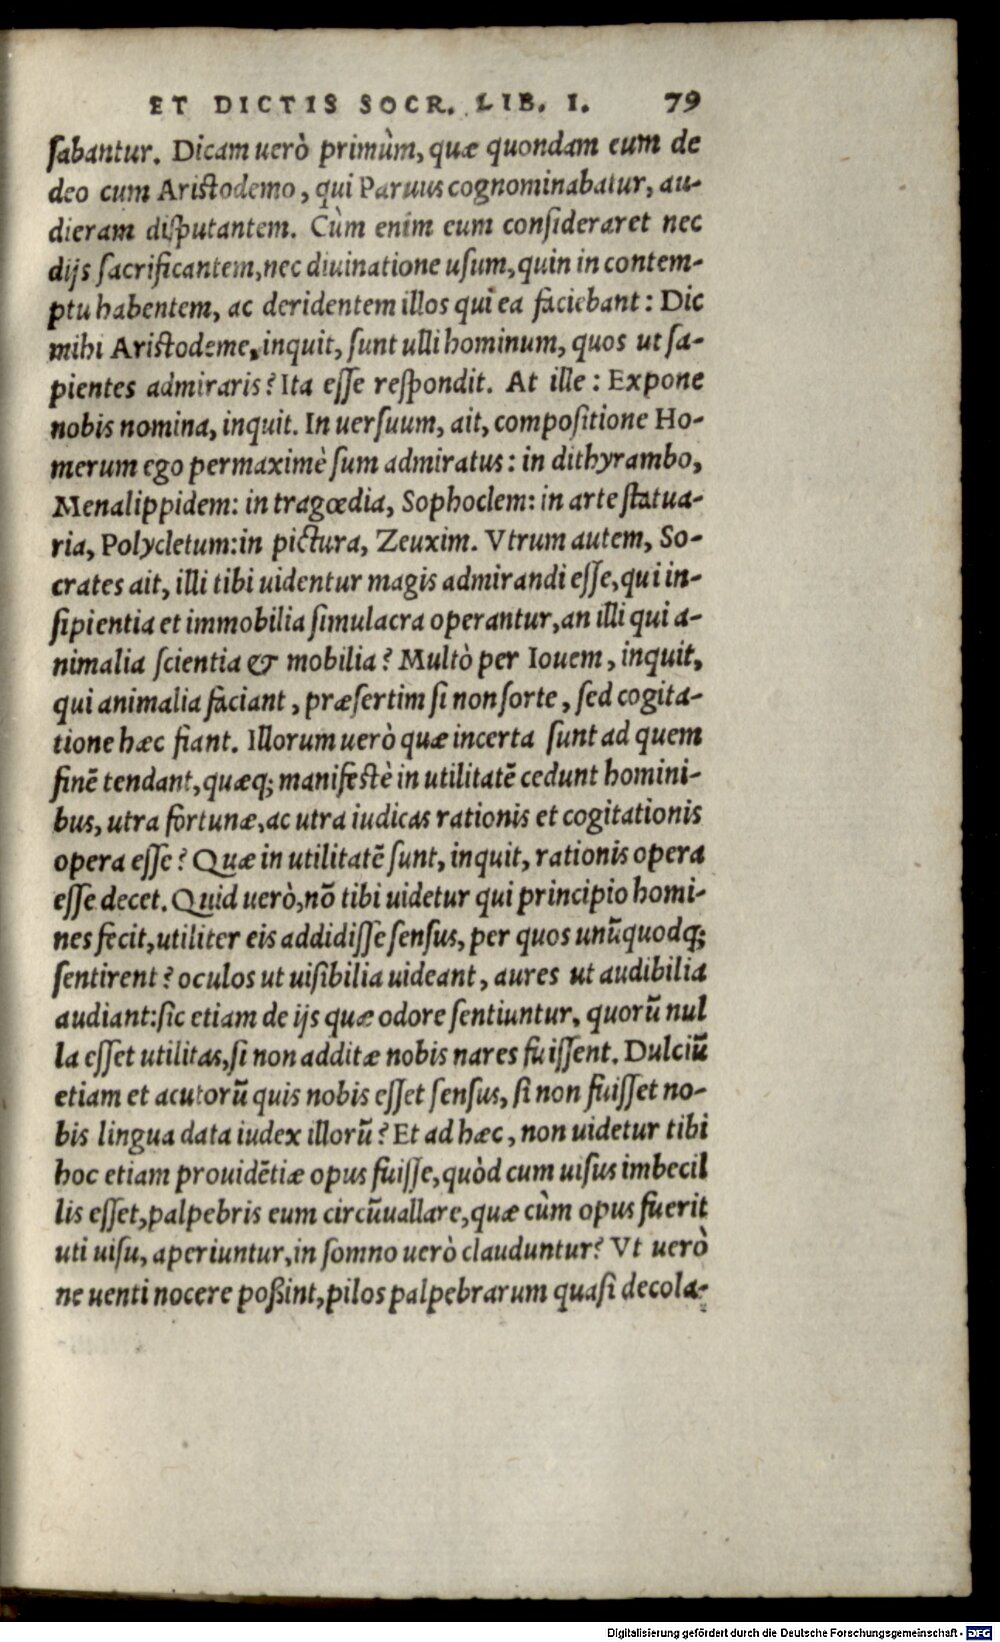 ET DICTIS SOCR. LIB. I. 79
sabantur. Dicam uerò primùm, quæ quondam eum de
deo cum Aristodemo, qui Paruus cognominabatur, au-
dieram disputantem. Cùm enim eum consideraret nec
dijs sacrificantem, nec diuinatione usum, quin in contem-
ptu habentem, ac deridentem illos qui ea faciebant: Dic
mihi Aristodeme, inquit, sunt ulli hominum, quos ut sa-
pientes admiraris? Ita esse respondit. At ille: Expone
nobis nomina, inquit. In uersuum, ait, compositione Ho-
merum ego permaximè sum admiratus: in dithyrambo,
Menalippidem: in tragœdia, Sophoclem: in arte statua-
ria, Polycletum: in pictura, Zeuxim. Vtrum autem, So-
crates ait, illi tibi uidentur magis admirandi esse, qui in-
sipientia et immobilia simulacra operantur, an illi qui a-
nimalia scientia & mobilia? Multò per Iouem, inquit,
qui animalia faciant, præsertim si non sorte, sed cogita-
tione hæc fiant. Illorum uerò quæ incerta sunt ad quem
finē tendant, quæq; manifestè in utilitatē cedunt homini-
bus, utra fortunæ, ac utra iudicas rationis et cogitationis
opera esse? Quæ in utilitatē sunt, inquit, rationis opera
esse decet. Quid uerò, nō tibi uidetur qui principio homi-
nes fecit, utiliter eis addidisse sensus, per quos unūquodq;
sentirent? oculos ut uisibilia uideant, aures ut audibilia
audiant: sic etiam de ijs quæ odore sentiuntur, quorū nul
la esset utilitas, si non additæ nobis nares fuissent. Dulciū
etiam et acutorū quis nobis esset sensus, si non fuisset no-
bis lingua data iudex illorū? Et ad hæc, non uidetur tibi
hoc etiam prouidētiæ opus fuisse, quòd cum uisus imbecil
lis esset, palpebris eum circūuallare, quæ cùm opus fuerit
uti uisu, aperiuntur, in somno uerò clauduntur? Vt uerò
ne uenti nocere poßint, pilos palpebrarum quasi decola-
Digitalisierung gefördert durch die Deutsche Forschungsgemeinschaft - DFG